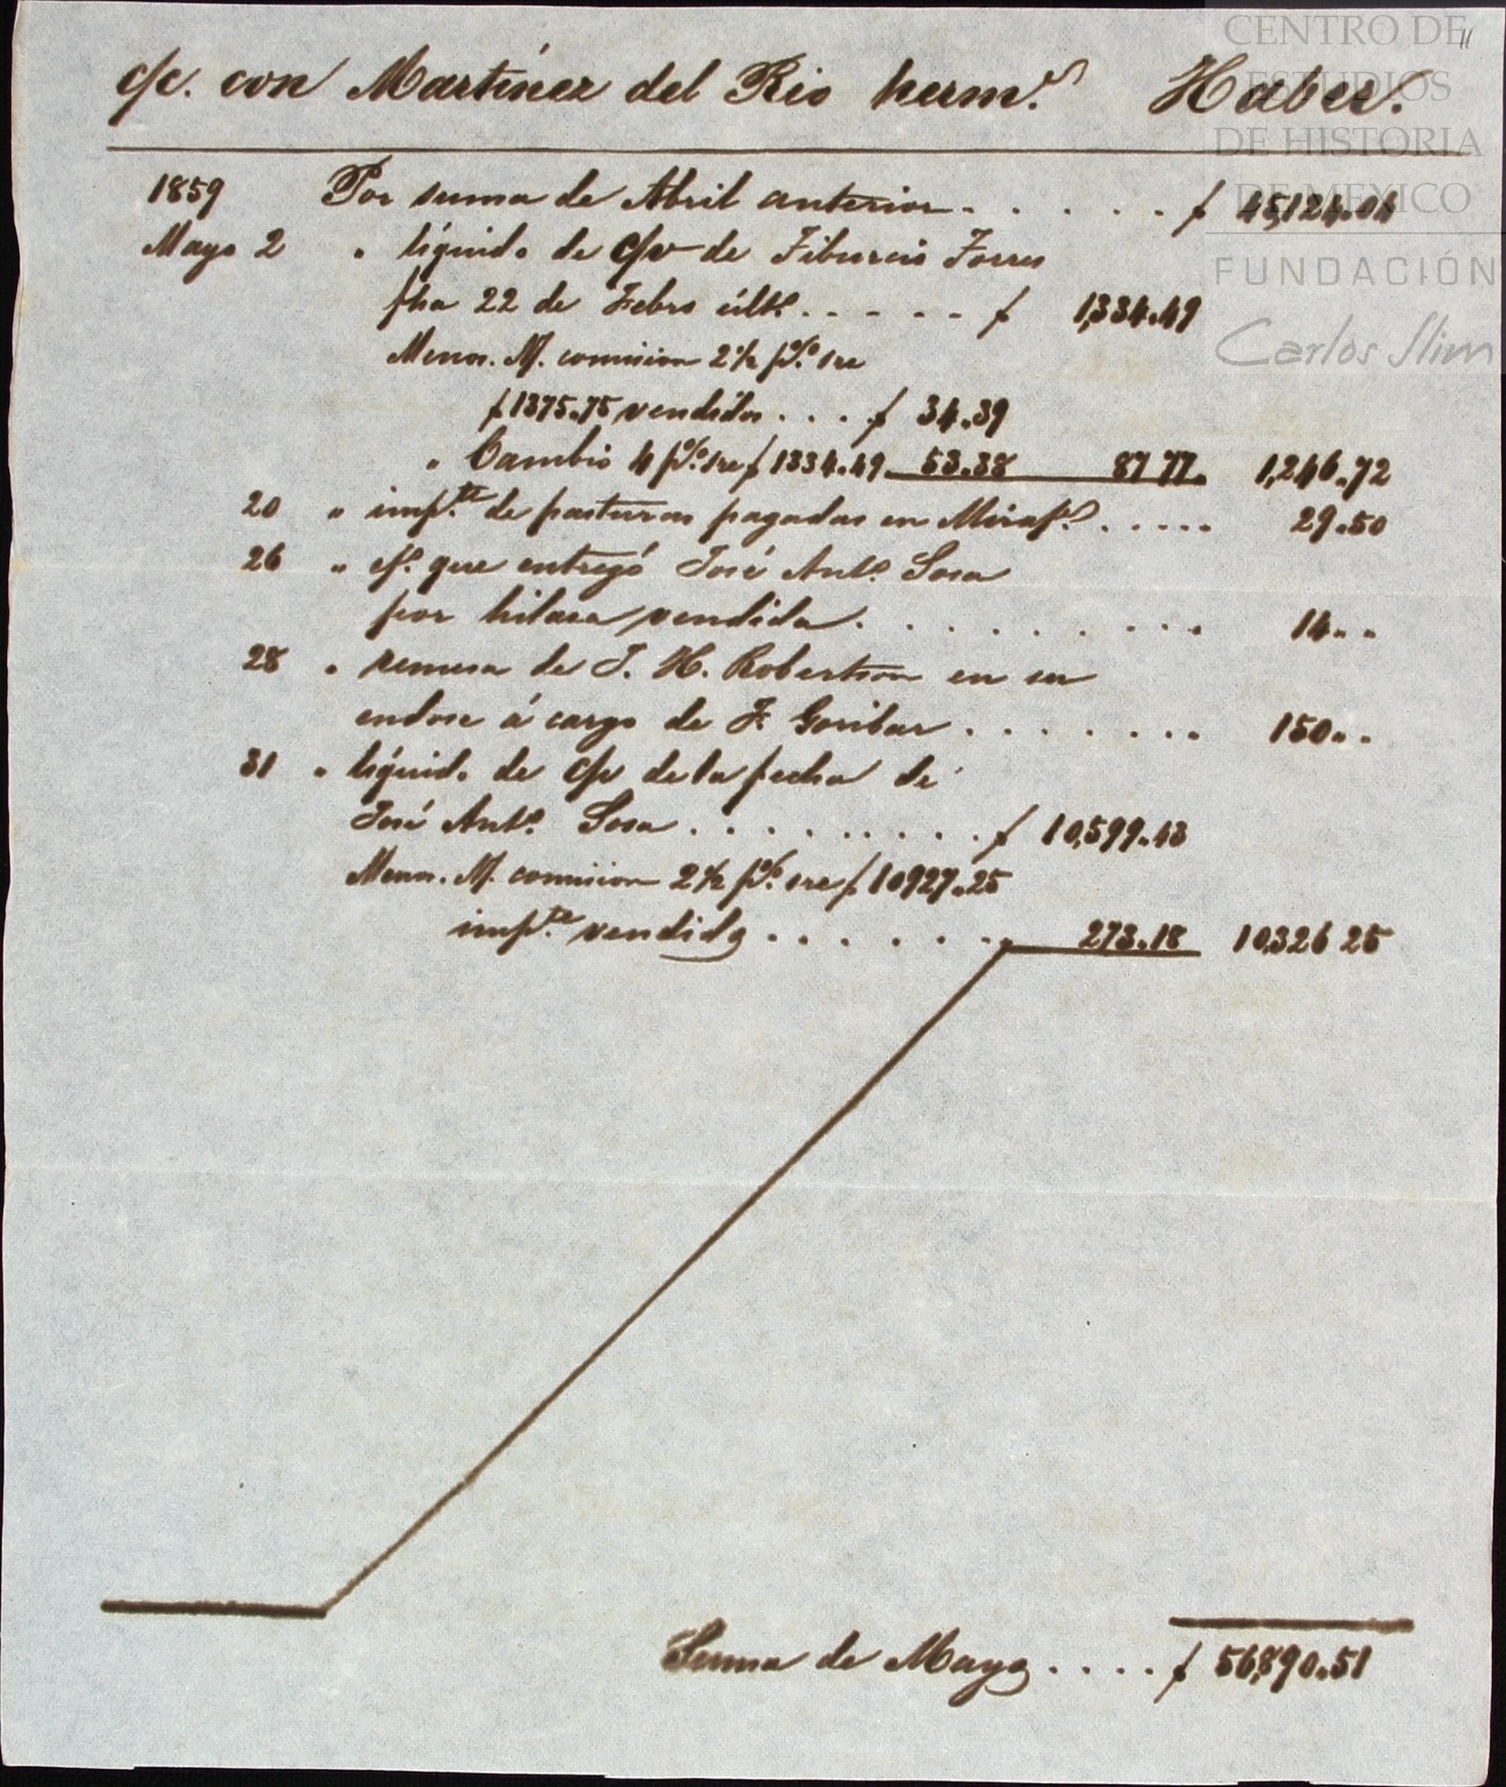 CENTRO DE
ESTUDIOS
DE HISTORIA
DE MEXICO
FUNDACIÓN
Carlos Slim
11
c/c. con Martínez del Rio herm.s Haber.
1859 Por suma de Abril anterior . . . . . . $ 45,124.04
Mayo 2 " líquido de c/v de Tiburcio Torres
fha 22 de Febro últo. . . . . . $ 1,334.49
Menos. N/. comision 2½ p%. sre
$1375.75 vendidos . . . $ 34.39
" Cambio 4 p%. sre $ 1334.49 53.38 87 77. 1,246.72
20 " impte. de pasturas pagadas en Mirafs. . . . . . 29.50
26 " ef. que entregó José Anto. Sosa
por hilaza vendida. . . . . . . . . . 14 " "
28 " remesa de J. H. Robertson en su
endose á cargo de F. Goribar . . . . . . . . 150 " .
31 " líquido de c/v de la fecha de
José Anto. Sosa . . . . . . . . . . $ 10,599.43
Menos. N/. comision 2½ p%. sre $ 10927.25
impte. vendido . . . . . . . 273.18 10,326 25
Suma de Mayo . . . . $ 56,890.51